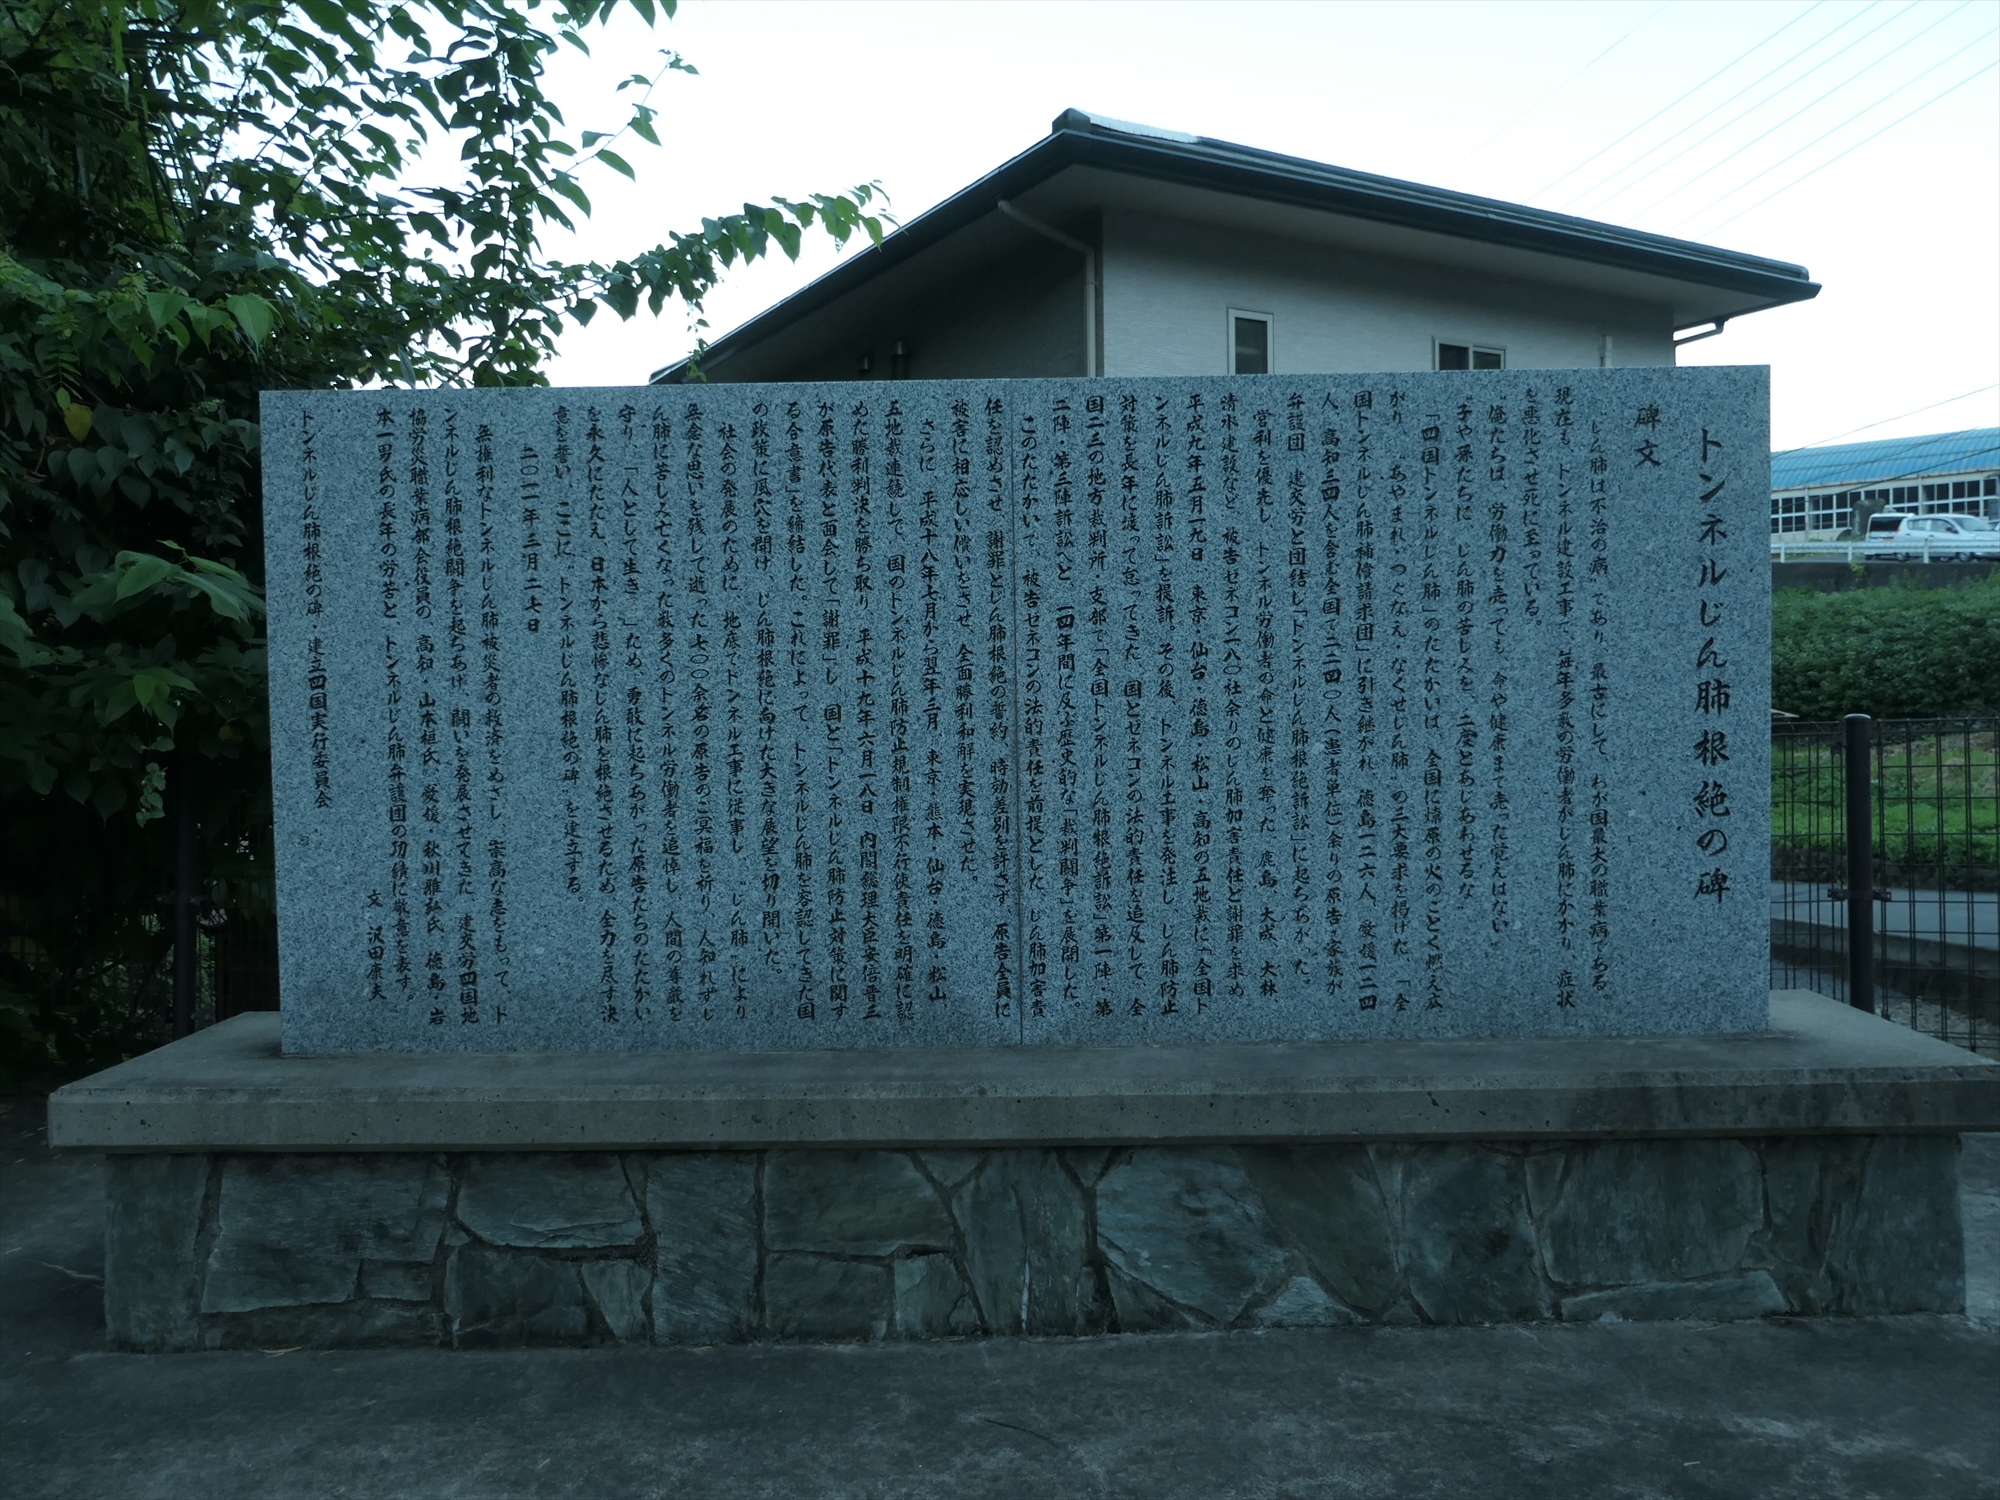 トンネルじん肺根絶の碑
碑文
じん肺は不治の病”であり、最古にして、わが国最大の職業病である。
現在も、トンネル建設工事で、毎年多数の労働者がじん肺にかかり、症状
を悪化させ死に至っている。
“俺たちは、労働力を売っても、命や健康まで売った覚えはない”
“子や孫たちに、じん肺の苦しみを、二度とあじあわせるな”
「四国トンネルじん肺」のたたかいは、全国に燎原の火のごとく燃え広
がり、“あやまれ・つぐなえ・なくせじん肺”の三大要求を掲げた、「全
国トンネルじん肺補償請求団」に引き継がれ、徳島一二六人、愛媛一二四
人、高知三四人を含む全国で二二四〇人（患者単位）余りの原告・家族が
弁護団、建交労と団結し「トンネルじん肺根絶訴訟」に起ちあがった。
営利を優先し、トンネル労働者の命と健康を奪った、鹿島、大成、大林、
清水建設など、被告ゼネコン一八〇社余りのじん肺加害責任と謝罪を求め
平成九年五月一九日、東京・仙台・徳島・松山・高知の五地裁に「全国ト
ンネルじん肺訴訟」を提訴。その後、トンネル工事を発注し、じん肺防止
対策を長年に渡って怠ってきた、国とゼネコンの法的責任を追及して、全
国二三の地方裁判所・支部で「全国トンネルじん肺根絶訴訟」第一陣・第
二陣・第三陣訴訟へと、一四年間に及ぶ歴史的な「裁判闘争」を展開した。
このたたかいで、被告ゼネコンの法的責任を前提とした、じん肺加害責
任を認めさせ、謝罪とじん肺根絶の誓約、時効差別を許さず、原告全員に
被害に相応しい償いをさせ、全面勝利和解を実現させた。
さらに、平成十八年七月から翌年三月、東京・熊本・仙台・徳島・松山
五地裁連続して、国のトンネルじん肺防止規制権限不行使責任を明確に認
めた勝利判決を勝ち取り、平成十九年六月一八日、内閣総理大臣安倍晋三
が原告代表と面会して「謝罪」し、国と「トンネルじん肺防止対策に関す
る合意書」を締結した。これによって、トンネルじん肺を容認してきた国
の政策に風穴を開け、じん肺根絶に向けた大きな展望を切り開いた。
社会の発展のために、地底でトンネル工事に従事し、“じん肺”により
無念な思いを残して逝った七〇〇余名の原告のご冥福を祈り、人知れずじ
ん肺に苦しみ亡くなった数多くのトンネル労働者を追悼し、人間の尊厳を
守り、「人として生き」ため、勇敢に起ちあがった原告たちのたたかい
を永久にたたえ、日本から悲惨なじん肺を根絶させるため、全力を尽す決
意を誓い、ここに、“トンネルじん肺根絶の碑”を建立する。
二〇一一年三月二七日
無権利なトンネルじん肺被災者の救済をめざし、崇高な志をもって、ト
ンネルじん肺根絶闘争を起ちあげ、闘いを発展させてきた、建交労四国地
協労災職業病部会役員の、高知・山本桓氏、愛媛・秋川雅弘氏、徳島・岩
本一男氏の長年の労苦と、トンネルじん肺弁護団の功績に敬意を表す。
文 沢田康夫
トンネルじん肺根絶の碑・建立四国実行委員会